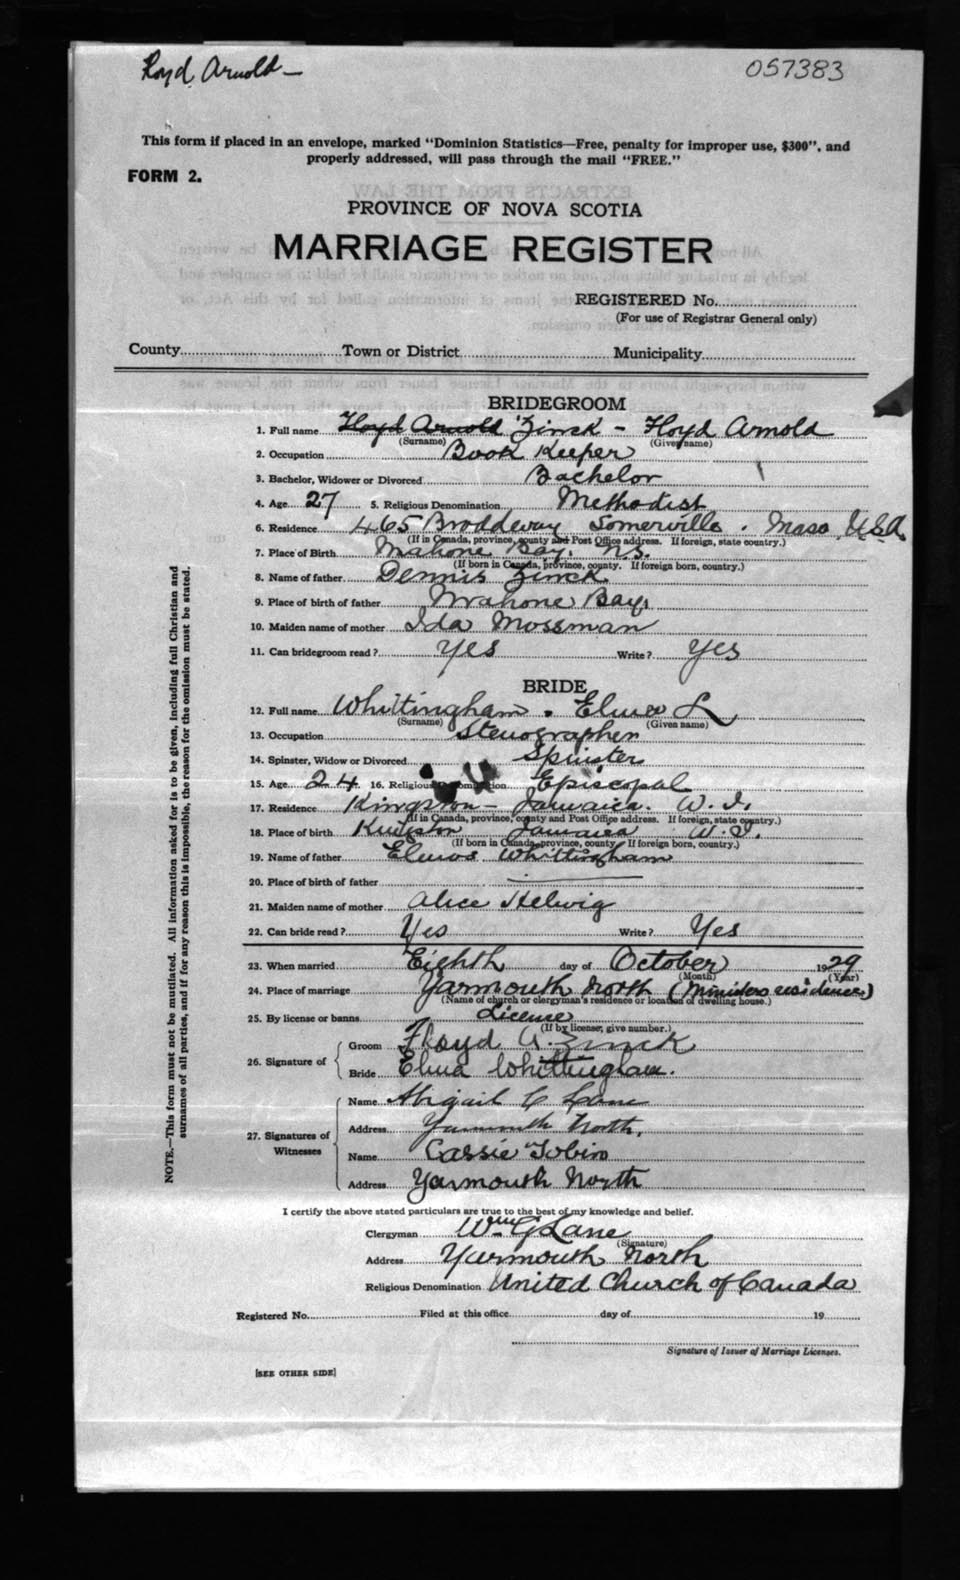 Floyd Arnold —
057383
This form if placed in an envelope, marked "Dominion Statistics—Free, penalty for improper use, $300", and
properly addressed, will pass through the mail "FREE."
FORM 2.
PROVINCE OF NOVA SCOTIA
MARRIAGE REGISTER
REGISTERED No.
(For use of Registrar General only)
County Town or District Municipality
BRIDEGROOM
1. Full name Floyd Arnold Zinck – Floyd Arnold
(Surname) (Given name)
2. Occupation Book Keeper
3. Bachelor, Widower or Divorced Bachelor
4. Age 27 5. Religious Denomination Methodist
6. Residence 465 Broddway Somerville. Mass. U.S.A.
(If in Canada, province, county and Post Office address. If foreign, state country.)
7. Place of Birth Mahone Bay, N.S.
(If born in Canada, province, county. If foreign born, country.)
8. Name of father Dennis Zinck
9. Place of birth of father Mahone Bay,
10. Maiden name of mother Ida Mossman
11. Can bridegroom read? Yes Write? Yes
BRIDE
12. Full name Whittingham. Elma L
(Surname) (Given name)
13. Occupation Stenographer
14. Spinster, Widow or Divorced Spinster
15. Age 24 16. Religious Denomination Episcopal
17. Residence Kingston – Jamaica. W. I.
(If in Canada, province, county and Post Office address. If foreign, state country.)
18. Place of birth Kingston Jamaica W. I.
(If born in Canada, province, county If foreign born, country.)
19. Name of father Whittingham
20. Place of birth of father
21. Maiden name of mother Alice Helwig
22. Can bride read? Yes Write? Yes
23. When married Eighth day of October 1929
(Month) (Year)
24. Place of marriage Yarmouth North (Ministers residence)
(Name of church or clergyman's residence or location of dwelling house.)
25. By license or banns License
(If by license, give number.)
26. Signature of Groom Floyd A. Zinck
Bride Elma Whittingham.
27. Signatures of Witnesses Name Abigail C Lane
Address Yarmouth North.
Name Cassie Tobin
Address Yarmouth North
I certify the above stated particulars are true to the best of my knowledge and belief.
Clergyman Wm G Lane
(Signature)
Address Yarmouth North
Religious Denomination United Church of Canada
Registered No. Filed at this office day of 19
Signature of Issuer of Marriage Licenses.
[SEE OTHER SIDE]
NOTE.—This form must not be mutilated. All information asked for is to be given, including full Christian and
surnames of all parties, and if for any reason this is impossible, the reason for the omission must be stated.